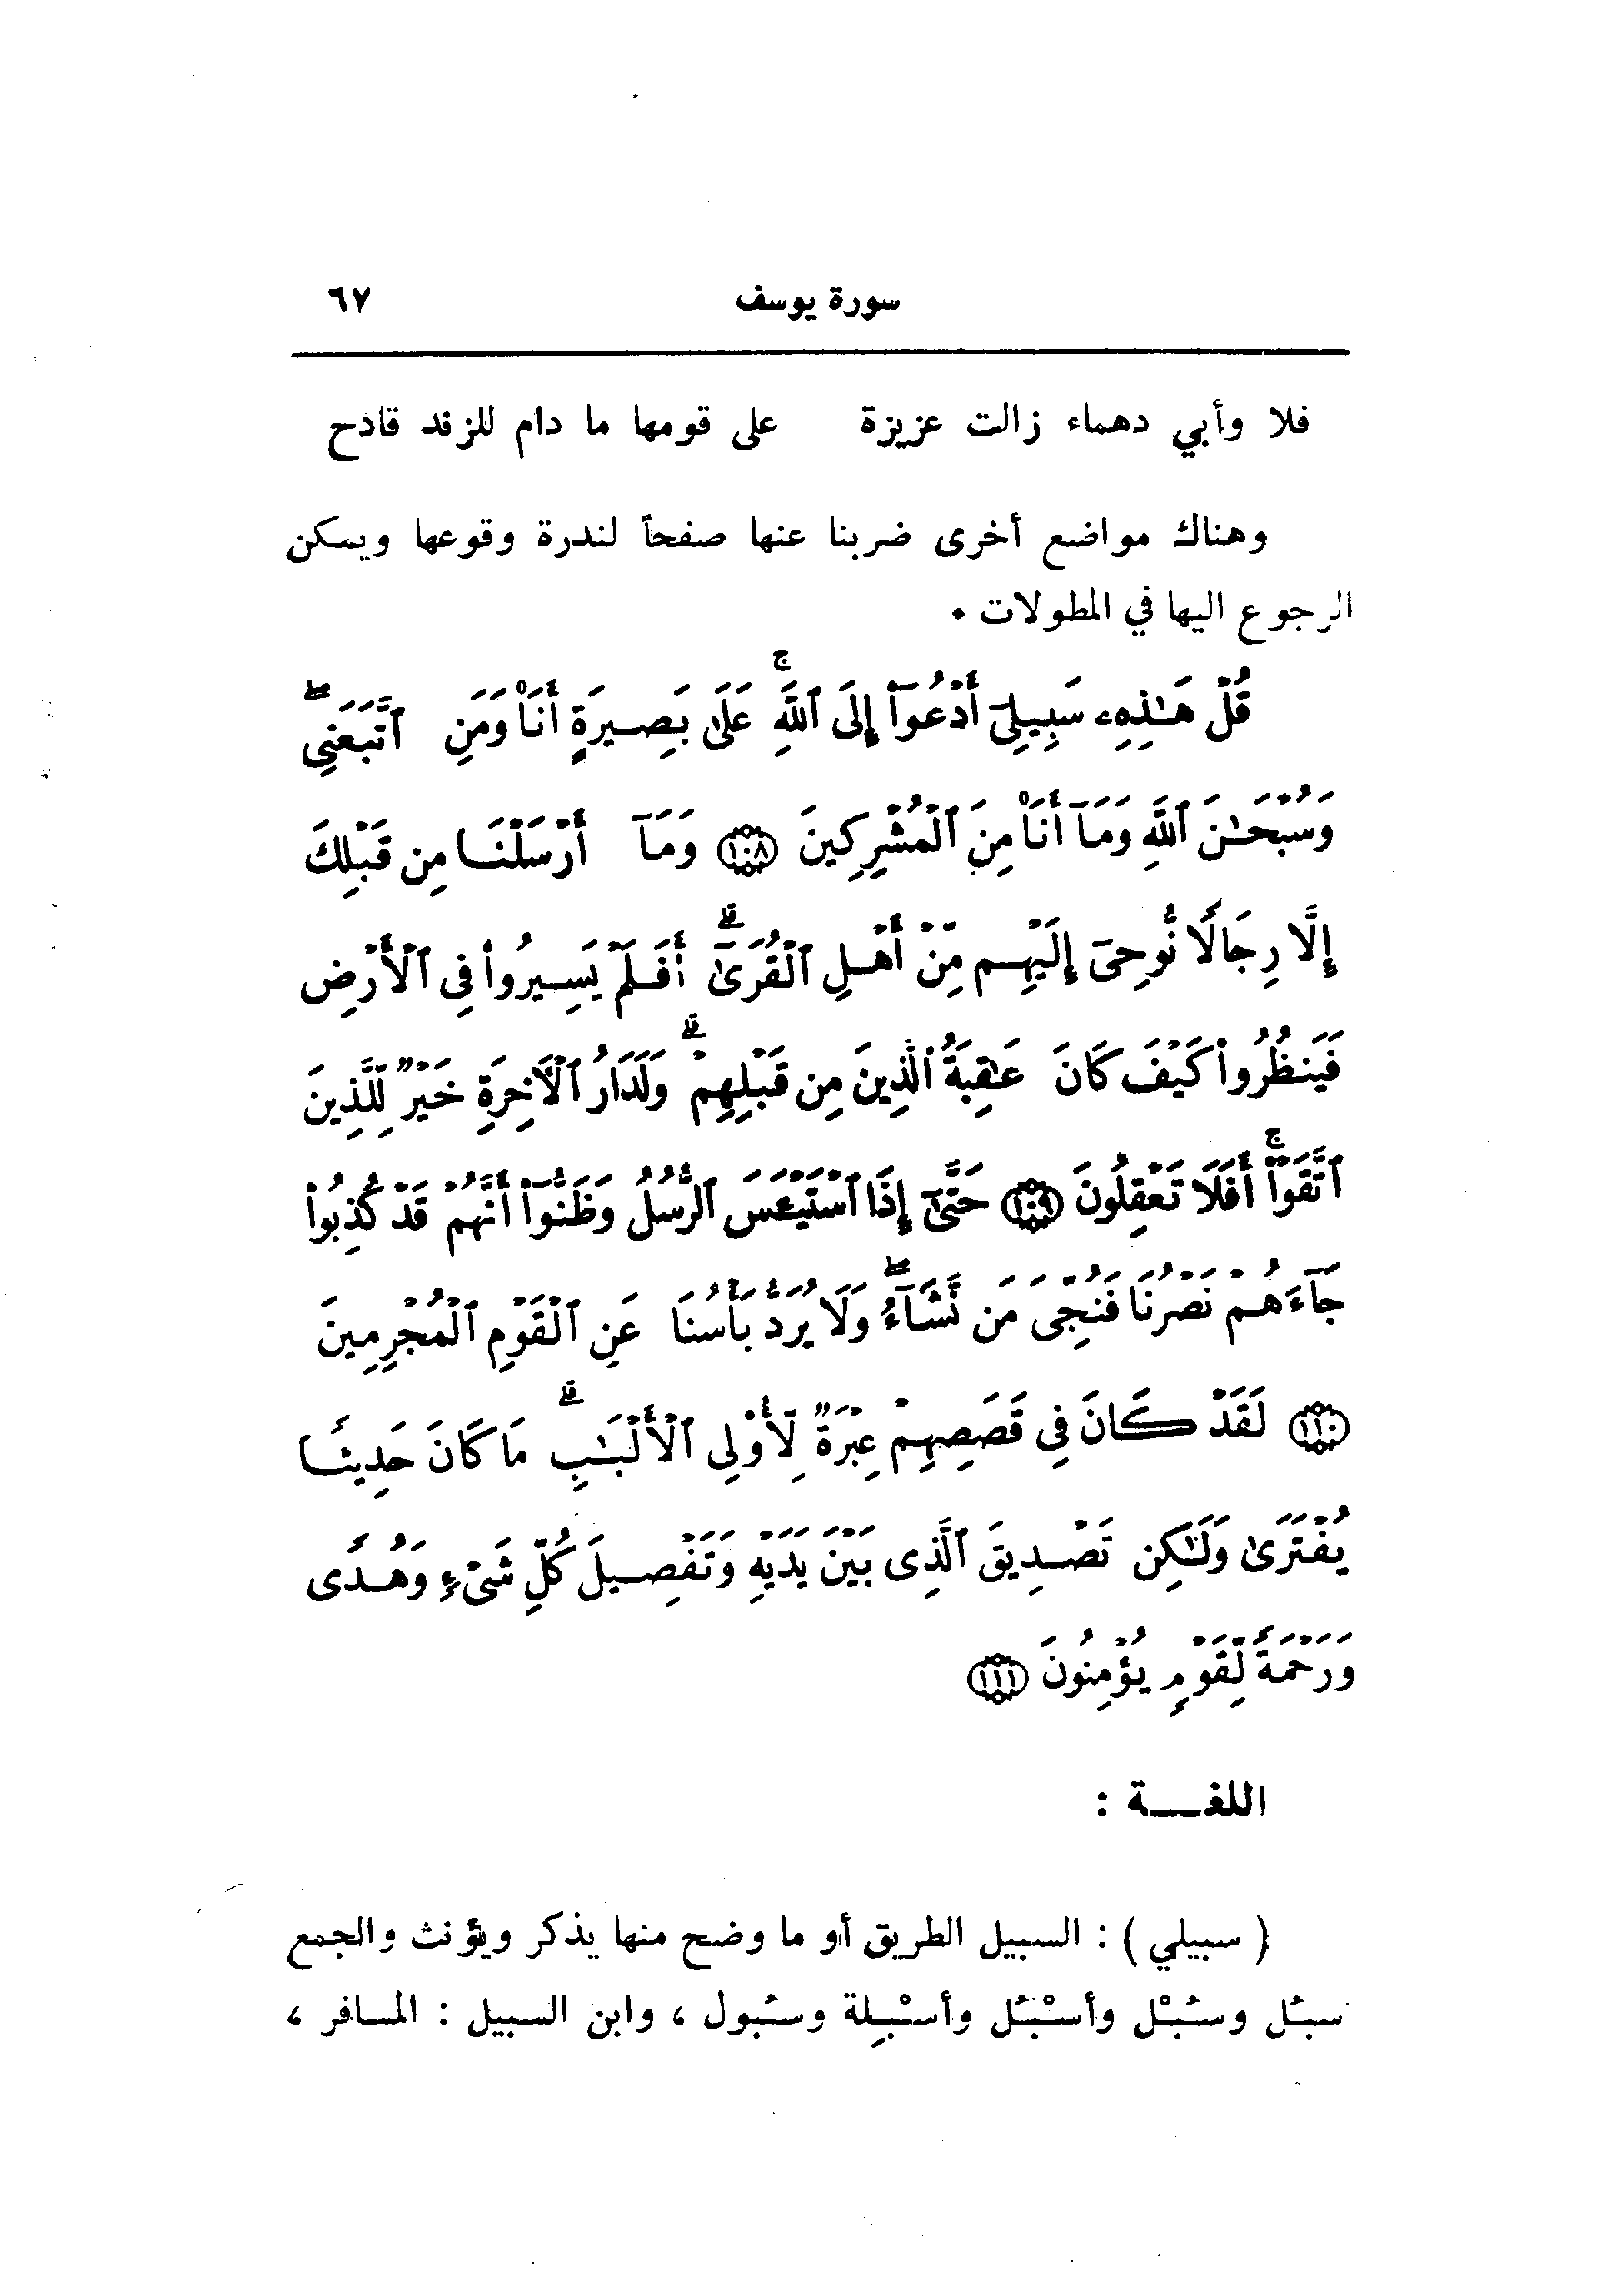 سورة يوسف ٦٧
فلا وأبي دهماء زالت عزيزة على قومها ما دام للزند قادح
وهناك مواضع أخرى ضربنا عنها صفحاً لندرة وقوعها ويمكن
الرجوع اليها في المطولات ٠
قُلْ هَـٰذِهِۦ سَبِيلِىٓ أَدْعُوٓا۟ إِلَى ٱللَّهِ ۚ عَلَىٰ بَصِيرَةٍ أَنَا۠ وَمَنِ ٱتَّبَعَنِى ۖ
وَسُبْحَـٰنَ ٱللَّهِ وَمَآ أَنَا۠ مِنَ ٱلْمُشْرِكِينَ ١٠٨ وَمَآ أَرْسَلْنَا مِن قَبْلِكَ
إِلَّا رِجَالًا نُّوحِىٓ إِلَيْهِم مِّنْ أَهْلِ ٱلْقُرَىٰٓ ۗ أَفَلَمْ يَسِيرُوا۟ فِى ٱلْأَرْضِ
فَيَنظُرُوا۟ كَيْفَ كَانَ عَـٰقِبَةُ ٱلَّذِينَ مِن قَبْلِهِمْ ۗ وَلَدَارُ ٱلْـَٔاخِرَةِ خَيْرٌ لِّلَّذِينَ
ٱتَّقَوْا۟ ۚ أَفَلَا تَعْقِلُونَ ١٠٩ حَتَّىٰٓ إِذَا ٱسْتَيْـَٔسَ ٱلرُّسُلُ وَظَنُّوٓا۟ أَنَّهُمْ قَدْ كُذِبُوا۟
جَآءَهُمْ نَصْرُنَا فَنُجِّىَ مَن نَّشَآءُ ۖ وَلَا يُرَدُّ بَأْسُنَا عَنِ ٱلْقَوْمِ ٱلْمُجْرِمِينَ
١١٠ لَقَدْ كَانَ فِى قَصَصِهِمْ عِبْرَةٌ لِّأُو۟لِى ٱلْأَلْبَـٰبِ ۗ مَا كَانَ حَدِيثًا
يُفْتَرَىٰ وَلَـٰكِن تَصْدِيقَ ٱلَّذِى بَيْنَ يَدَيْهِ وَتَفْصِيلَ كُلِّ شَىْءٍ وَهُدًى
وَرَحْمَةً لِّقَوْمٍ يُؤْمِنُونَ ١١١
اللغـــة :
( سبيلي ) : السبيل الطريق أو ما وضح منها يذكر ويؤنث والجمع
سبُل وسُبْل وأسْبُل وأسْبِلة وسُبول ، وابن السبيل : المسافر ،